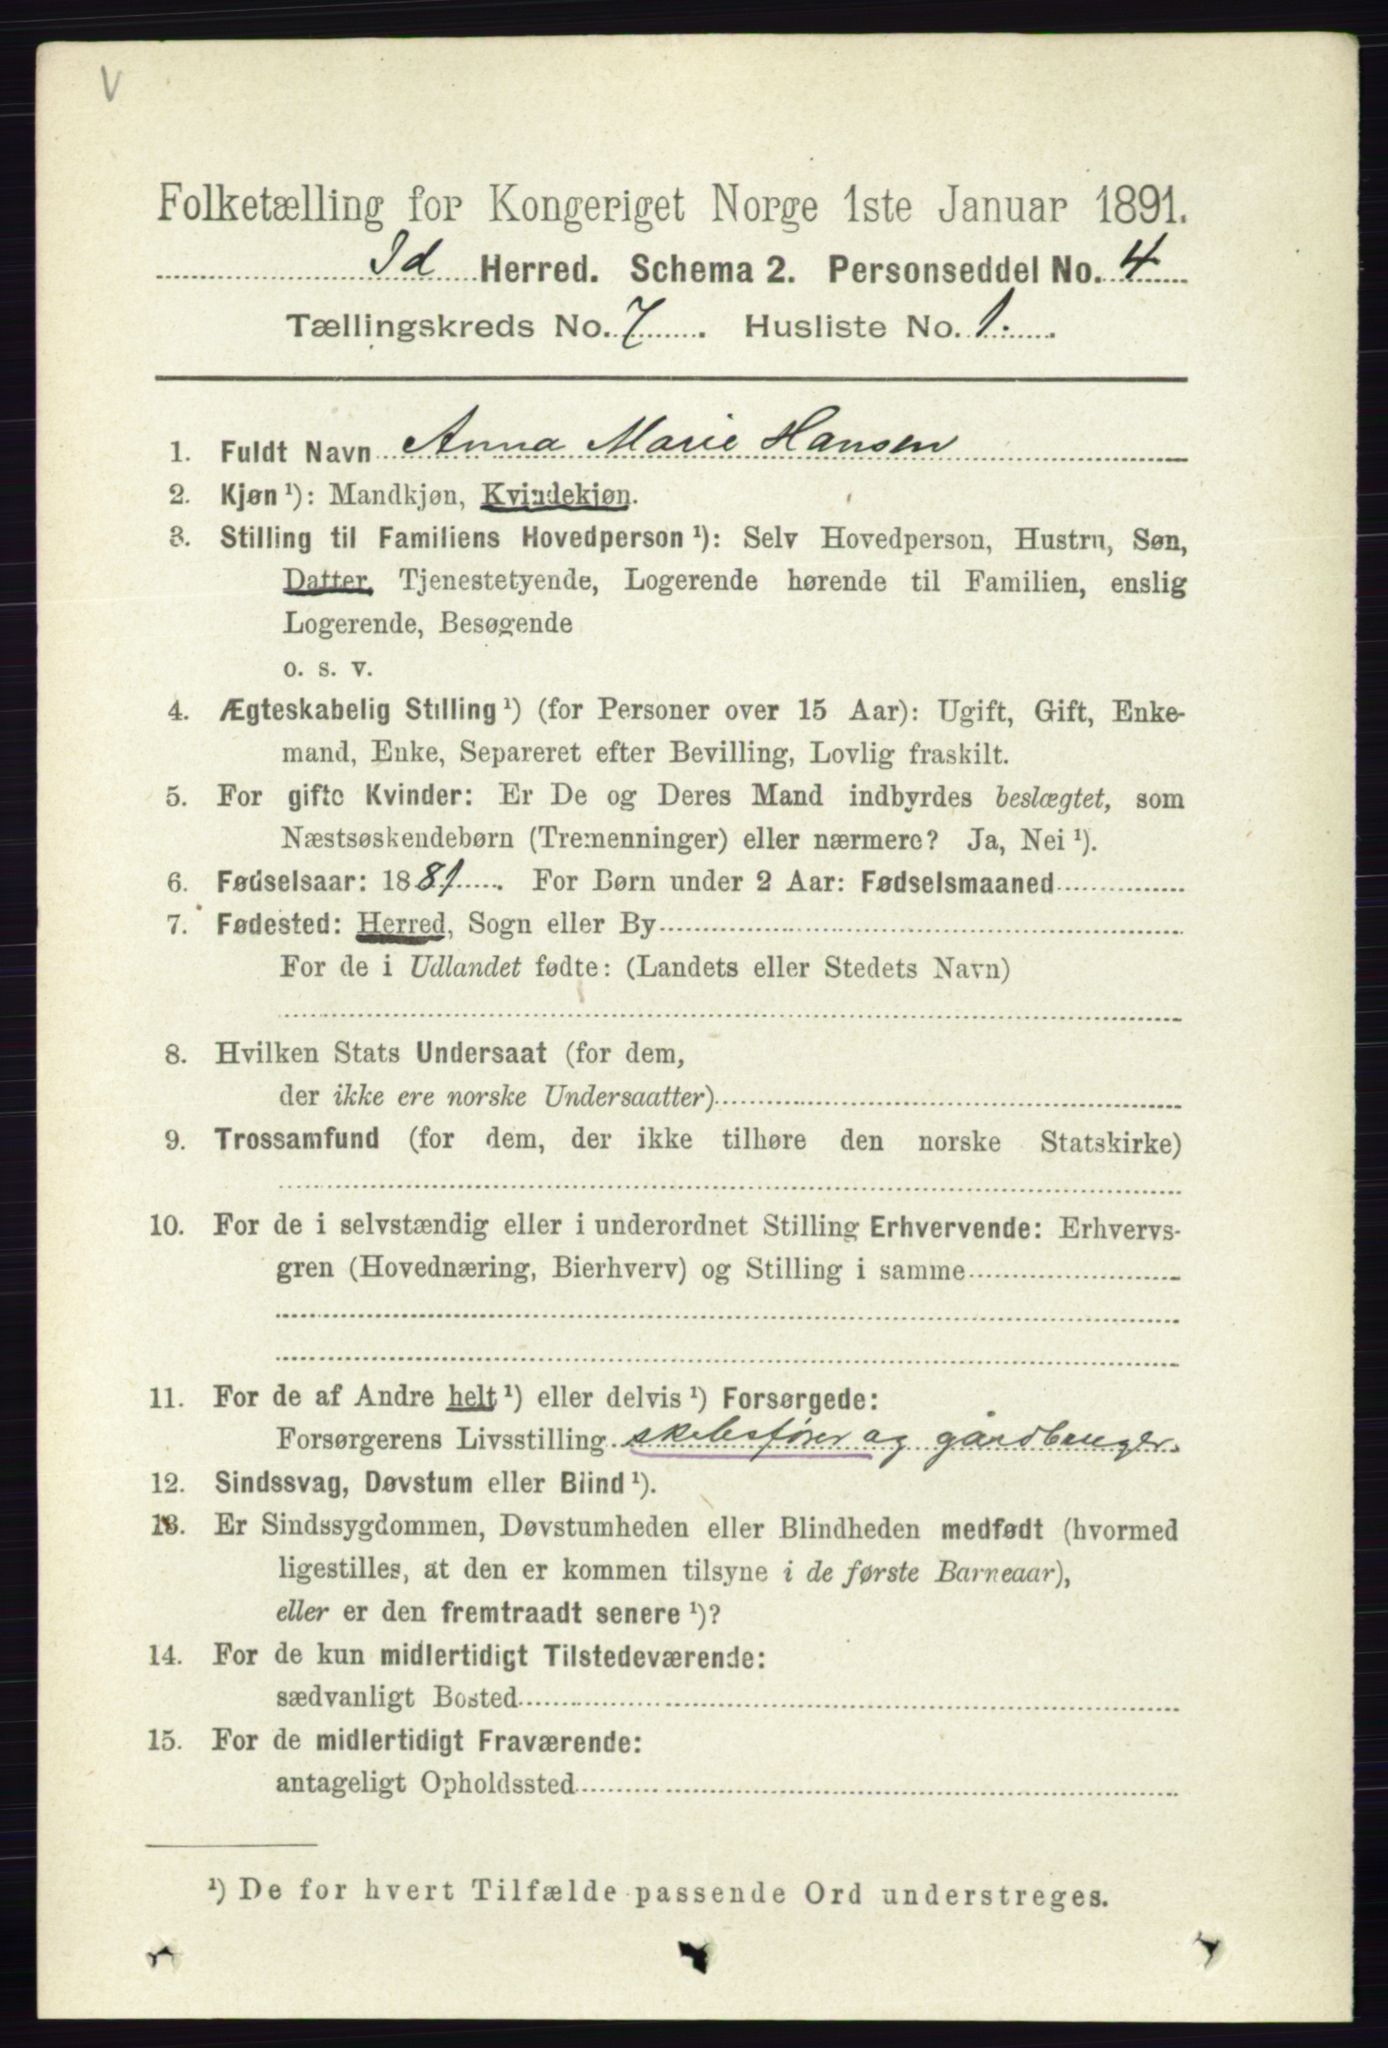 V
Folketælling for Kongeriget Norge 1ste Januar 1891.
Id Herred. Schema 2. Personseddel No. 4
Tællingskreds No. 7. Husliste No. 1.
1. Fuldt Navn Anna Marie Hansen
2. Kjøn ¹): Mandkjøn, Kvindekjøn.
3. Stilling til Familiens Hovedperson ¹): Selv Hovedperson, Hustru, Søn,
Datter, Tjenestetyende, Logerende hørende til Familien, enslig
Logerende, Besøgende
o. s. v.
4. Ægteskabelig Stilling ¹) (for Personer over 15 Aar): Ugift, Gift, Enke-
mand, Enke, Separeret efter Bevilling, Lovlig fraskilt.
5. For gifte Kvinder: Er De og Deres Mand indbyrdes beslægtet, som
Næstsøskendebørn (Tremenninger) eller nærmere? Ja, Nei ¹).
6. Fødselsaar: 1881. For Børn under 2 Aar: Fødselsmaaned
7. Fødested: Herred, Sogn eller By
For de i Udlandet fødte: (Landets eller Stedets Navn)
8. Hvilken Stats Undersaat (for dem,
der ikke ere norske Undersaatter)
9. Trossamfund (for dem, der ikke tilhøre den norske Statskirke)
10. For de i selvstændig eller i underordnet Stilling Erhvervende: Erhvervs-
gren (Hovednæring, Bierhverv) og Stilling i samme
11. For de af Andre helt ¹) eller delvis ¹) Forsørgede:
Forsørgerens Livsstilling skibsfører og gårdbruger.
12. Sindssvag, Døvstum eller Blind ¹).
13. Er Sindssygdommen, Døvstumheden eller Blindheden medfødt (hvormed
ligestilles, at den er kommen tilsyne i de første Barneaar),
eller er den fremtraadt senere ¹)?
14. For de kun midlertidigt Tilstedeværende:
sædvanligt Bosted
15. For de midlertidigt Fraværende:
antageligt Opholdssted
¹) De for hvert Tilfælde passende Ord understreges.